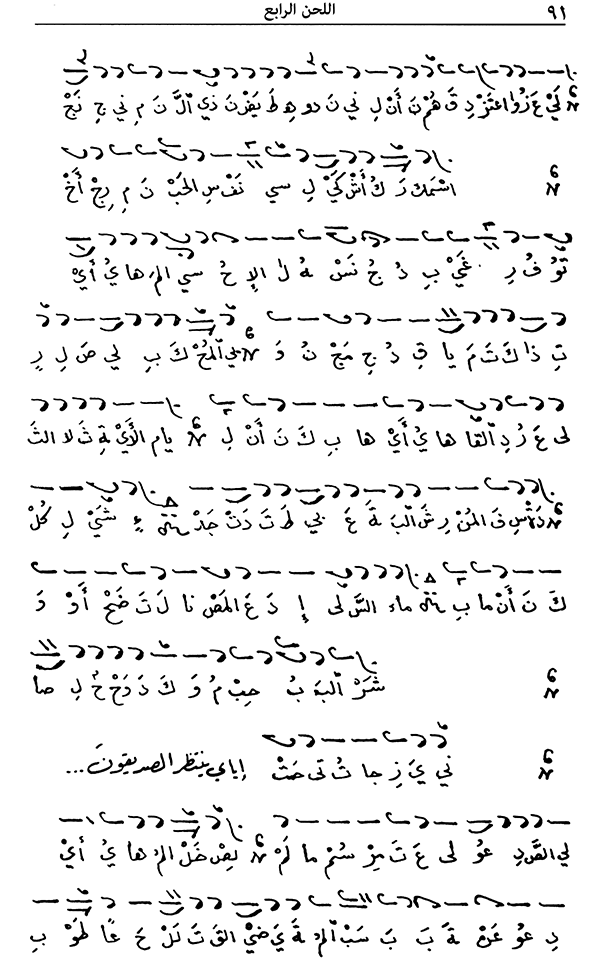 ٩١ اللحن الرابع
لَيْ عَ زُوا عْتَزْ دِ قَ هُمْ نَ أَنْ لِ ني نَ دو هِ طَ يَفْ نَ ذي الَّ نَ مِ ني جِ نَجْ
اسْمِكَ رَ كُ أَشْ كَيْ لِ سي نَفْ سِ الحَبْ نَ مِ رِجْ أَخْ
تَوْ فُ رِ غَيْ بِ دُ جُ نَسْ هُ لَ الإِ حُ سي المَ ها يُ أَيْ
تِ ذا كَ تَ مَ يا قِ دُ جِ مَجْ نُ وَ لي المُخْ كَ بِ لي صَ لِ رِ
لى عَ رُ دِ القا ها يُ أَيْ ها بِ كَ نَ أَنْ لِ يام الأَيْ ةِ ثَ لا الثَ
سِ فَ المُنْ رِ شَ البَ ةَ عَ بي طَ تَ دَتْ جَدْ ءٍ شَيْ لِ كُلْ
كَ نَ أَنْ ما بِ ماء السَّ لى إِ دَ عَ المَصْ نا لَ تَ ضَحْ أَوْ وَ
شَرْ البَ بُ حِبْ مُ وَ كَ دَ دَحْ حُ لِ صا
ني يَ زِ جا تُ تى حَتْ إياي ينتظر الصديقونَ...
لي الصَّ دِ عُو لى عَ تَ سُمْ ما لَمْ لِصْ خَلْ المُ ها يُ أَيْ
دِ عُو ةَ بَ بَ سَبْ المُ ةَ يَ ضِيْ القَ تَ لَلْ حَ عًا طَوْ بِ